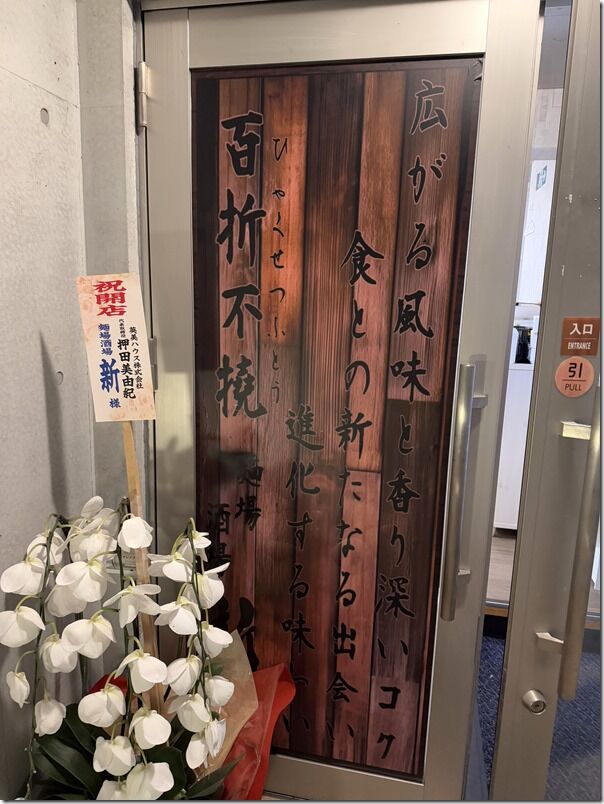 広がる風味と香り深いコク
食との新たなる出会い
進化する味わい
ひゃくせつふとう
百折不撓
麺場
酒場
新
祝開店
英美ハウス株式会社
代表取締役
押田美由紀
麺場酒場
新 様
入口
ENTRANCE
引
PULL